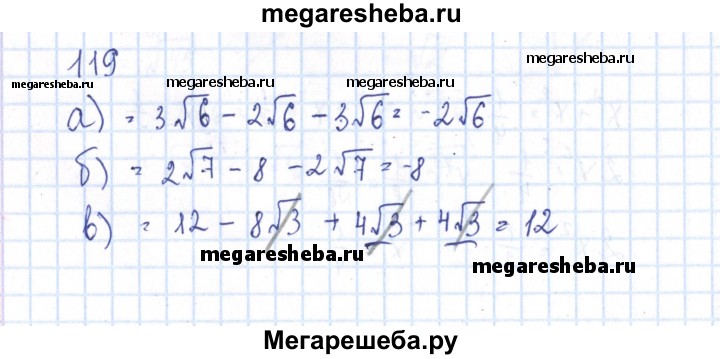 megaresheba.ru
119
megaresheba.ru
megaresheba.ru megaresheba.ru megaresheba.ru
а) = 3√6 - 2√6 - 3√6 = -2√6
б) = 2√7 - 8 - 2√7 = -8
в) = 12 - 8√3 + 4√3 + 4√3 = 12
megaresheba.ru megaresheba.ru
Мегарешеба.ру